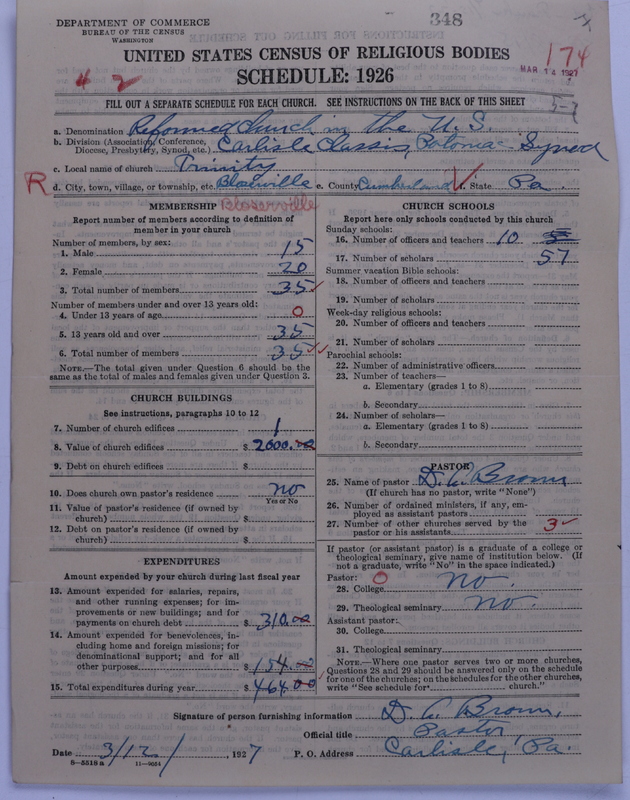 348
DEPARTMENT OF COMMERCE
BUREAU OF THE CENSUS
WASHINGTON
UNITED STATES CENSUS OF RELIGIOUS BODIES
174
MAR 14 1927
SCHEDULE: 1926
4 2
FILL OUT A SEPARATE SCHEDULE FOR EACH CHURCH. SEE INSTRUCTIONS ON THE BACK OF THIS SHEET
a. Denomination Reformed Church in the U.S.
b. Division (Association, Conference, Diocese, Presbytery, Synod, etc.) Carlisle Classis, Potomac Synod
c. Local name of church Trinity
R d. City, town, village, or township, etc. Bloserville e. County Cumberland f. State Pa.
Bloserville
MEMBERSHIP
Report number of members according to definition of
member in your church
Number of members, by sex:
1. Male 15
2. Female 20
3. Total number of members 35
Number of members under and over 13 years old:
4. Under 13 years of age 0
5. 13 years old and over 35
6. Total number of members 35
NOTE.—The total given under Question 6 should be the
same as the total of males and females given under Question 3.
CHURCH BUILDINGS
See instructions, paragraphs 10 to 12
7. Number of church edifices 1
8. Value of church edifices $ 2000.00
9. Debt on church edifices $
10. Does church own pastor's residence no
Yes or No
11. Value of pastor's residence (if owned by
church) $
12. Debt on pastor's residence (if owned by
church) $
EXPENDITURES
Amount expended by your church during last fiscal year
13. Amount expended for salaries, repairs,
and other running expenses; for im-
provements or new buildings; and for
payments on church debt $ 310.00
14. Amount expended for benevolences, in-
cluding home and foreign missions; for
denominational support; and for all
other purposes $ 154.00
15. Total expenditures during year $ 464.00
CHURCH SCHOOLS
Report here only schools conducted by this church
Sunday schools:
16. Number of officers and teachers 10
17. Number of scholars 57
Summer vacation Bible schools:
18. Number of officers and teachers
19. Number of scholars
Week-day religious schools:
20. Number of officers and teachers
21. Number of scholars
Parochial schools:
22. Number of administrative officers
23. Number of teachers—
a. Elementary (grades 1 to 8)
b. Secondary
24. Number of scholars—
a. Elementary (grades 1 to 8)
b. Secondary
PASTOR
25. Name of pastor D. A. Brown
(If church has no pastor, write "None")
26. Number of ordained ministers, if any, em-
ployed as assistant pastors
27. Number of other churches served by the
pastor or his assistants 3
If pastor (or assistant pastor) is a graduate of a college or
theological seminary, give name of institution below. (If
not a graduate, write "No" in the space indicated.)
Pastor: 0
28. College no.
29. Theological seminary no.
Assistant pastor:
30. College
31. Theological seminary
NOTE.—Where one pastor serves two or more churches,
Questions 28 and 29 should be answered only on the schedule
for one of the churches; on the schedules for the other churches,
write "See schedule for church."
Signature of person furnishing information D. A. Brown,
Official title Pastor,
Date 3/12/ 1927 P. O. Address Carlisle, Pa.
8—5518 a 11—9054